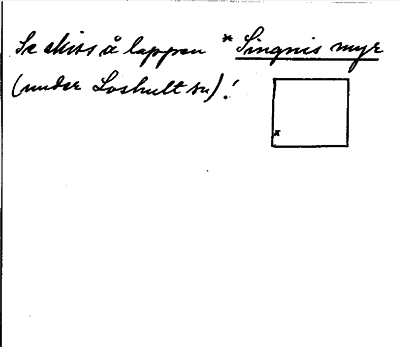 Se skiss å lappen * Singnis myr
(under Loshult sn)!
x